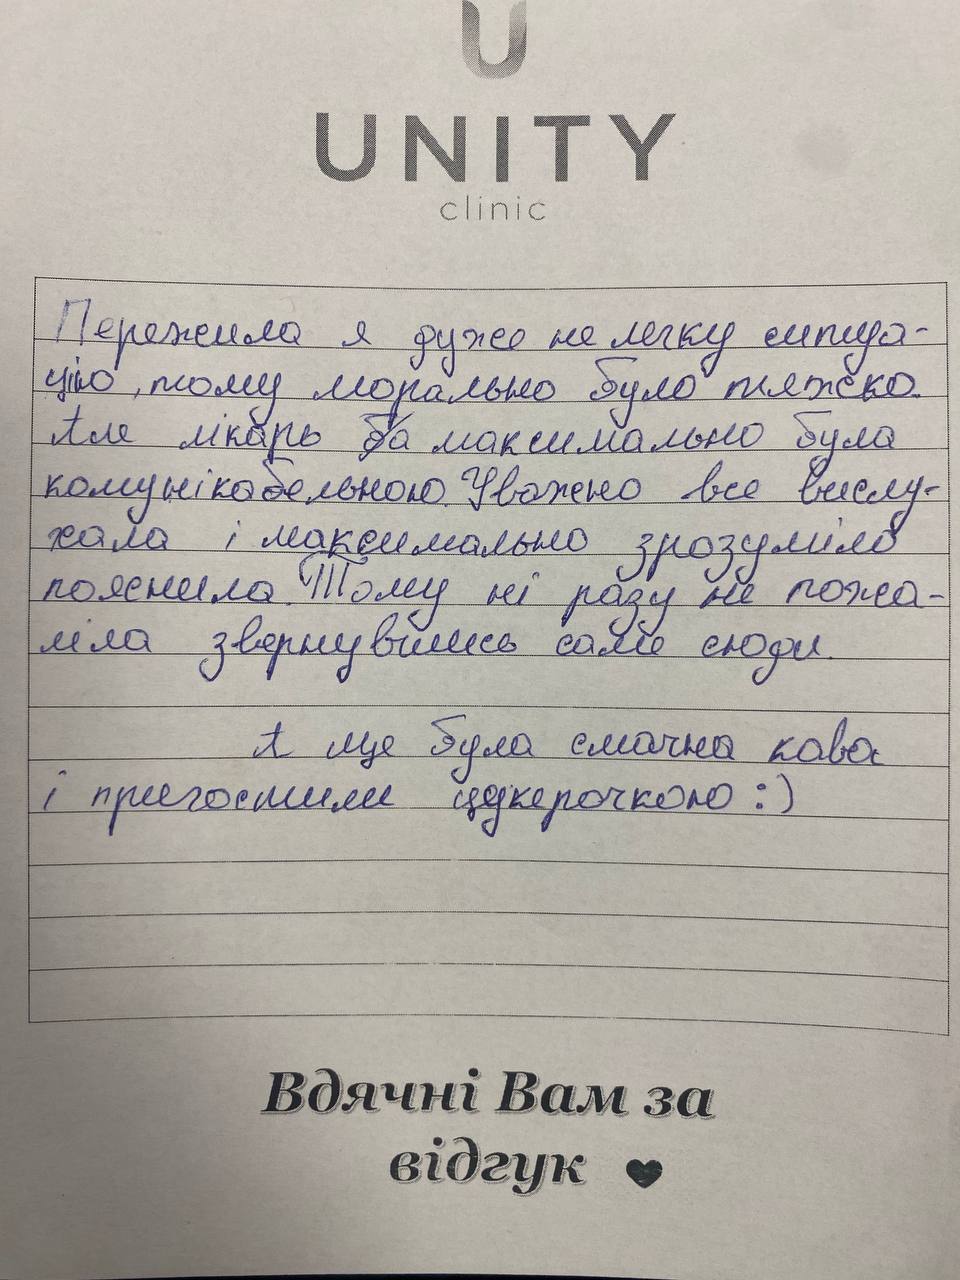 U
UNITY
clinic
Пережила я дуже не легку ситуа-
цію, тому морально було тяжко.
Але лікарь максимально була
комунікабельною. Уважно все вислу-
хала і максимально зрозуміло
пояснила. Тому ні разу не пожа-
ліла звернувшись саме сюди.
А ще була смачна кава
і пригостили цукерочкою :)
Вдячні Вам за
відгук